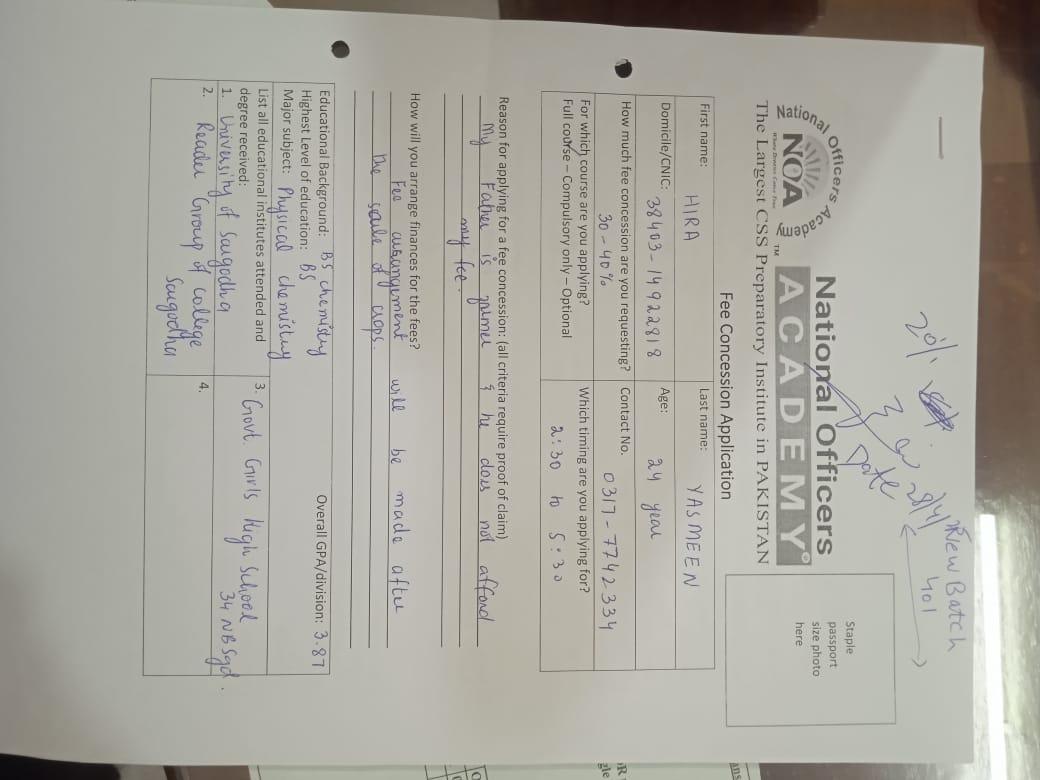 New Batch
401
20%
28/4/
Date
National Officers Academy
NOA
Where Dreams Come True
TM
National Officers
ACADEMY®
The Largest CSS Preparatory Institute in PAKISTAN
Staple
passport
size photo
here
Fee Concession Application
First name: HIRA
Last name: YASMEEN
Domicile/CNIC: 38403-14922818
Age: 24 year
How much fee concession are you requesting?
30-40%
Contact No.
0317-7742334
For which course are you applying?
Full course – Compulsory only – Optional
Which timing are you applying for?
2:30 to 5:30
Reason for applying for a fee concession: (all criteria require proof of claim)
My Father is & he does not afford
my fee.
How will you arrange finances for the fees?
Fee arrangement will be made after
the scale of crops.
Educational Background: BS chemistry
Highest Level of education: BS
Overall GPA/division: 3.87
Major subject: Physical chemistry
List all educational institutes attended and
degree received:
1. University of Sargodha
2. Reader Group of College
Sargodha
3. Govt. Girls High School
34 NB Sgd.
4.